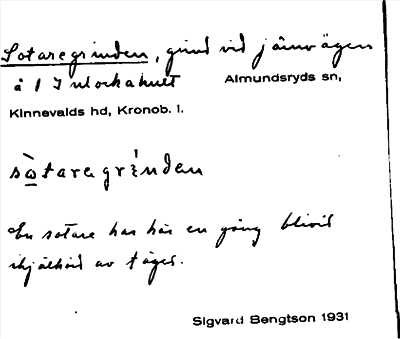 Sotaregrinden, grind vid järnvägen
å 1 Inlockahult Almundsryds sn,
Kinnevalds hd, Kronob. l.
sò̱taregrínden
En sotare har här en gång blivit
ihjälkörd av tåget.
Sigvard Bengtson 1931